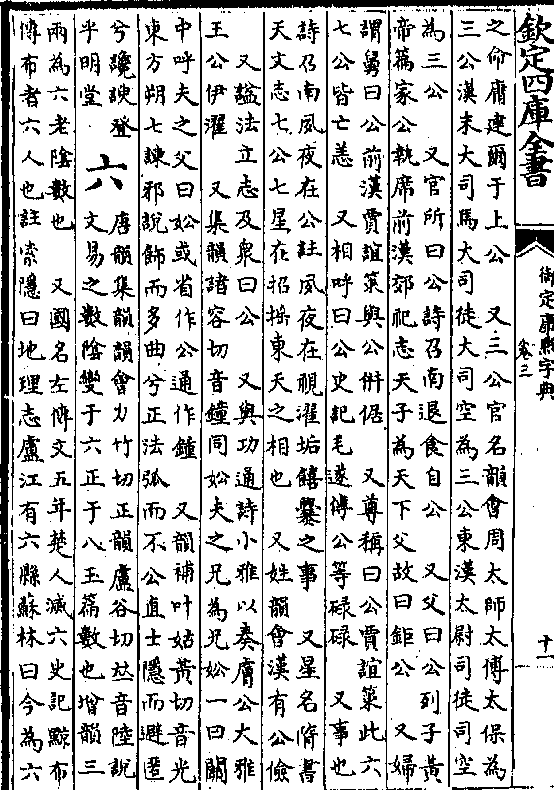 欽定四庫全書
御定康熙字典
卷三
十一
之命庸建爾于上公　又三公官名韻會周太師太傅太保為
三公漢末大司馬大司徒大司空為三公東漢太尉司徒司空
為三公　又官所曰公詩召南退食自公　又父曰公列子黃
帝篇家公執席前漢郊祀志天子為天下父故曰鉅公　又婦
謂舅曰公前漢賈誼策與公併倨　又尊稱曰公賈誼策此六
七公皆亡恙　又相呼曰公史記毛遂傳公等碌碌　又事也
詩召南夙夜在公註夙夜在視濯垢饎爨之事　又星名隋書
天文志七公七星在招搖東天之相也　又姓韻會漢有公儉
又諡法立志及衆曰公　又與功通詩小雅以奏膚公大雅
王公伊濯　又集韻諸容切音鐘同妐夫之兄為兄妐一曰關
中呼夫之父曰妐或省作公通作鍾　又韻補叶姑黃切音光
東方朔七諫邪說飾而多曲兮正法弧而不公直士隱而避匿
兮讒諛登乎明堂
六　唐韻集韻韻會力竹切正韻盧谷切𠀤音陸說
文易之數陰變于六正于八玉篇數也增韻三
兩為六老陰數也　又國名左傳文五年楚人滅六史記黥布
傳布者六人也註索隱曰地理志盧江有六縣蘇林曰今為六